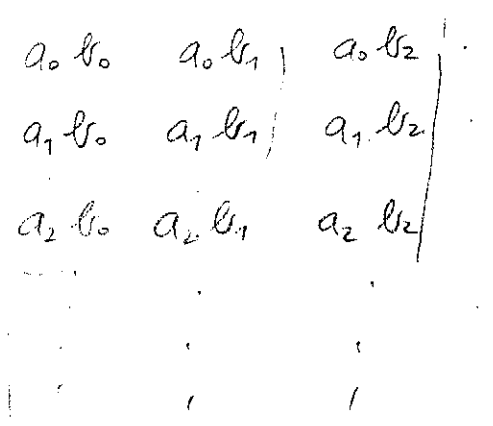 a₀ b₀ a₀ b₁ a₀ b₂
a₁ b₀ a₁ b₁ a₁ b₂
a₂ b₀ a₂ b₁ a₂ b₂